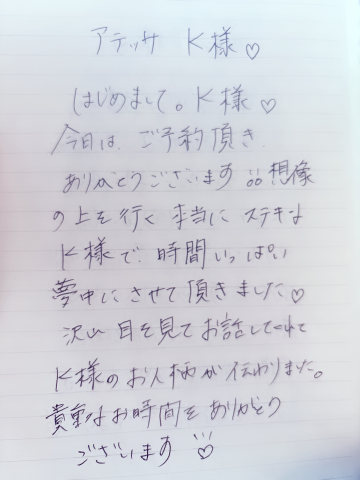 アテッサ K様♡
はじめまして。K様♡
今日は、ご予約頂き
ありがとうございます 想像
の上を行く本当にステキな
K様で、時間いっぱい
夢中にさせて頂きました♡
沢山目を見てお話してくれて
K様のお人柄が伝わりました。
貴重なお時間をありがとう
ございます♡